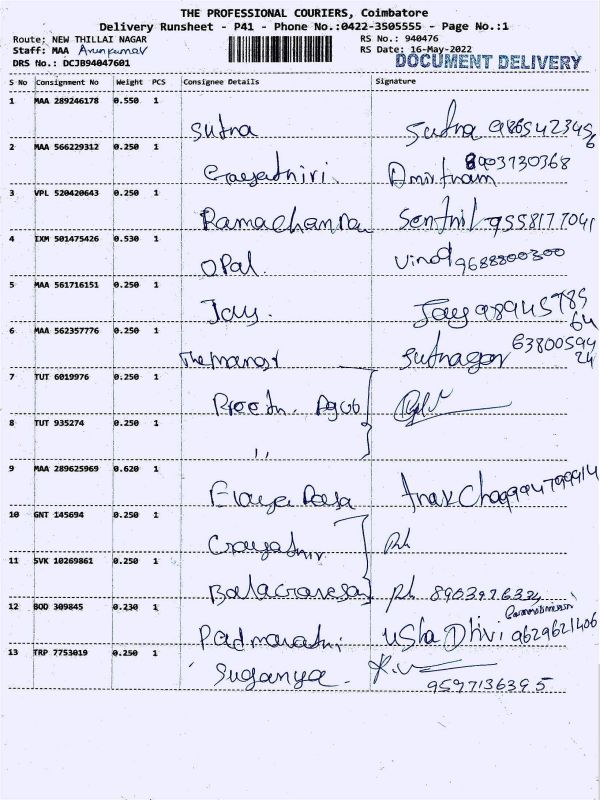 THE PROFESSIONAL COURIERS, Coimbatore
Delivery Runsheet - P41 - Phone No.:0422-3505555 - Page No.:1
Route: NEW THILLAI NAGAR RS No.: 940476
Staff: MAA Arunkumar RS Date: 16-May-2022
DRS No.: DCJB94047601 DOCUMENT DELIVERY
S No Consignment No Weight PCS Consignee Details Signature
1 MAA 289246178 0.550 1
Sutha Sutha
2 MAA 566229312 0.250 1
Gayathiri. 8903730368
3 VPL 520420643 0.250 1
Ramachandran Senthil 9558177041
4 IXM 501475426 0.530 1
Opal. Vinod 9688800300
5 MAA 561716151 0.250 1
Jay. Jay 98945785
64
6 MAA 562357776 0.250 1
63800594
24
7 TUT 6019976 0.250 1
8 TUT 935274 0.250 1
,,
9 MAA 289625969 0.620 1
10 GNT 145694 0.250 1
Gayathir
11 SVK 10269861 0.250 1
12 BOD 309845 0.230 1
Padmavathi Usha 9629621406
13 TRP 7753019 0.250 1
Suganya.
9597136395